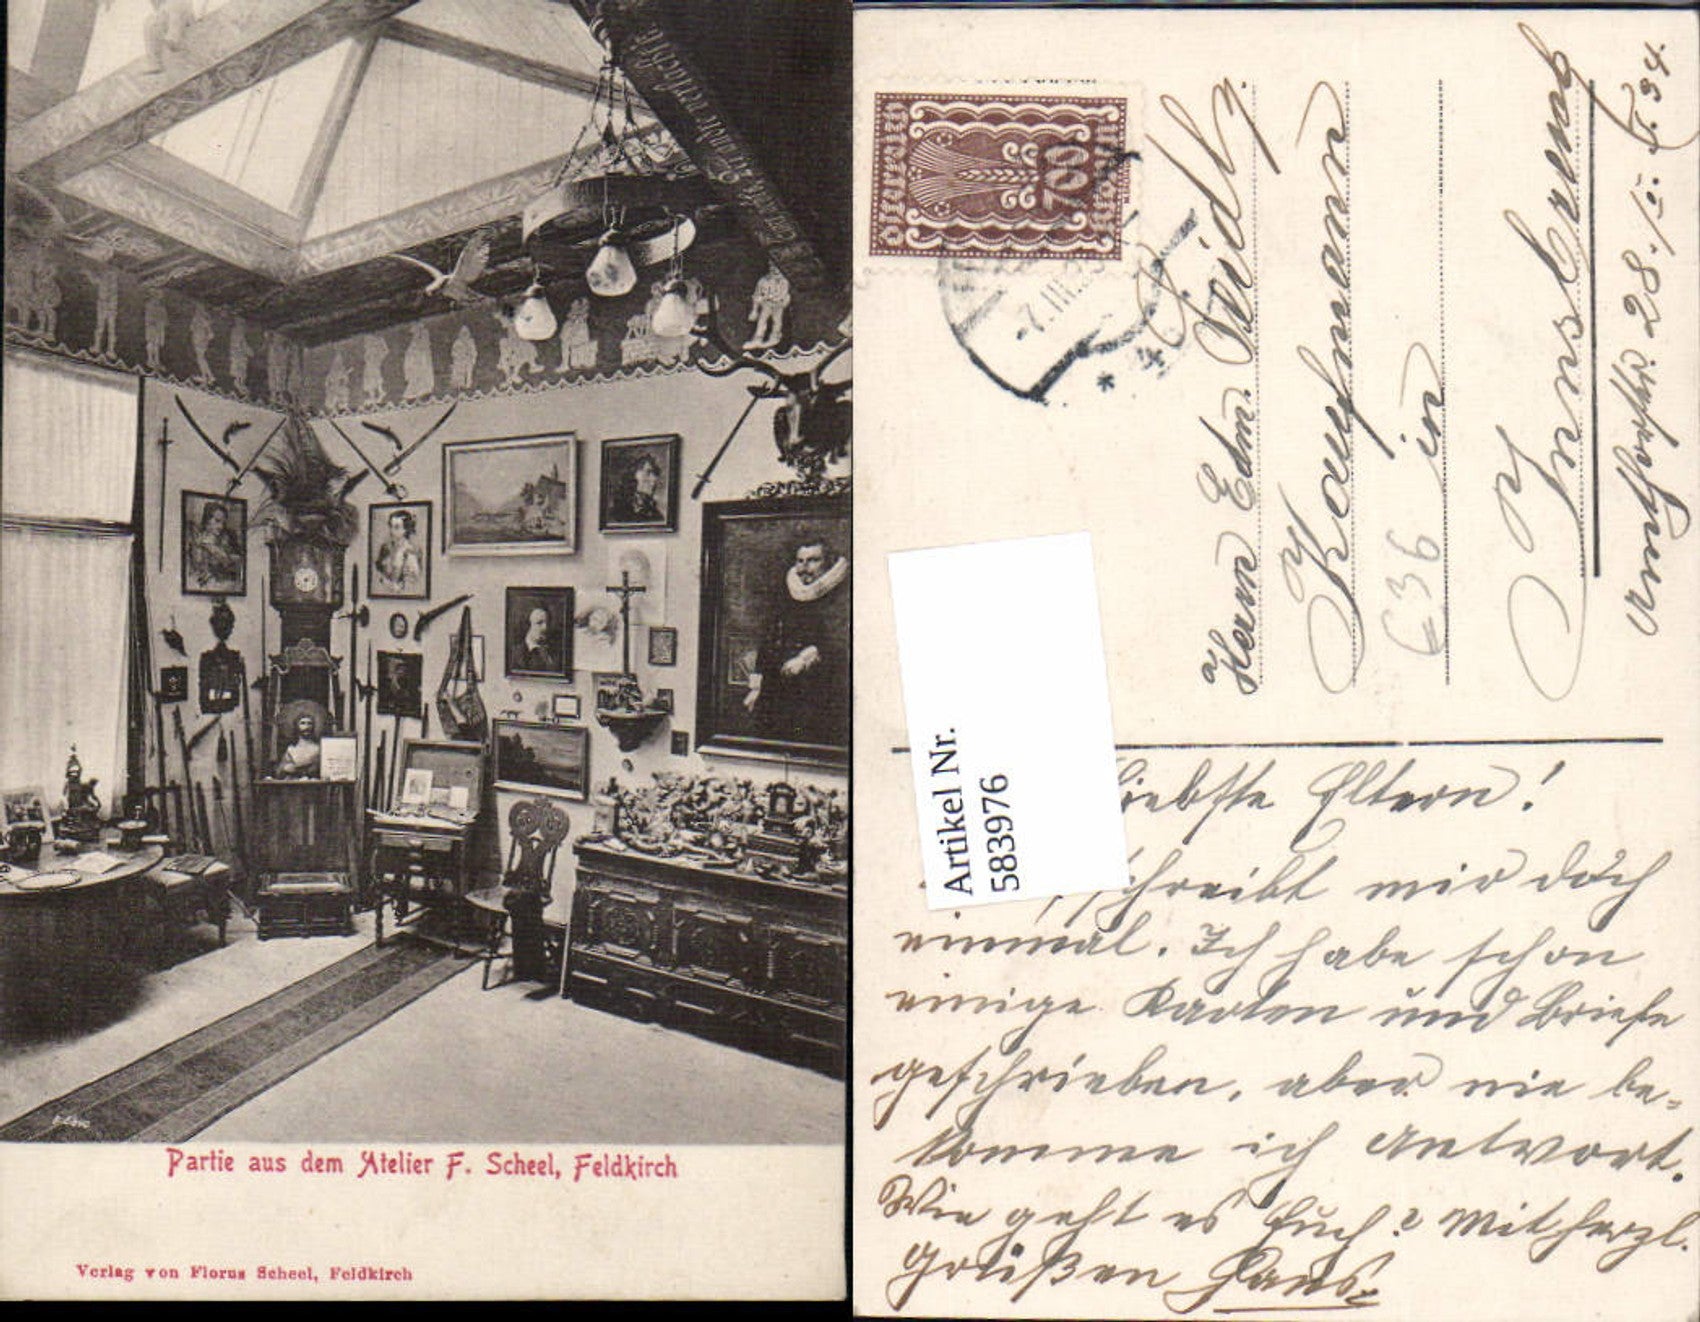 Partie aus dem Atelier F. Scheel, Feldkirch
Verlag von Florus Scheel, Feldkirch
Österreich
700
7.III.
* 4
Herrn Edm.
Kaufmann
636 in
Innsbruck
34.
Artikel Nr.
583976
Liebste Eltern!
schreibt mir doch
einmal. Ich habe schon
einige Karten und Briefe
geschrieben, aber nie be-
komme ich Antwort.
Wie geht es Euch? Mit herzl.
Grüßen Hans